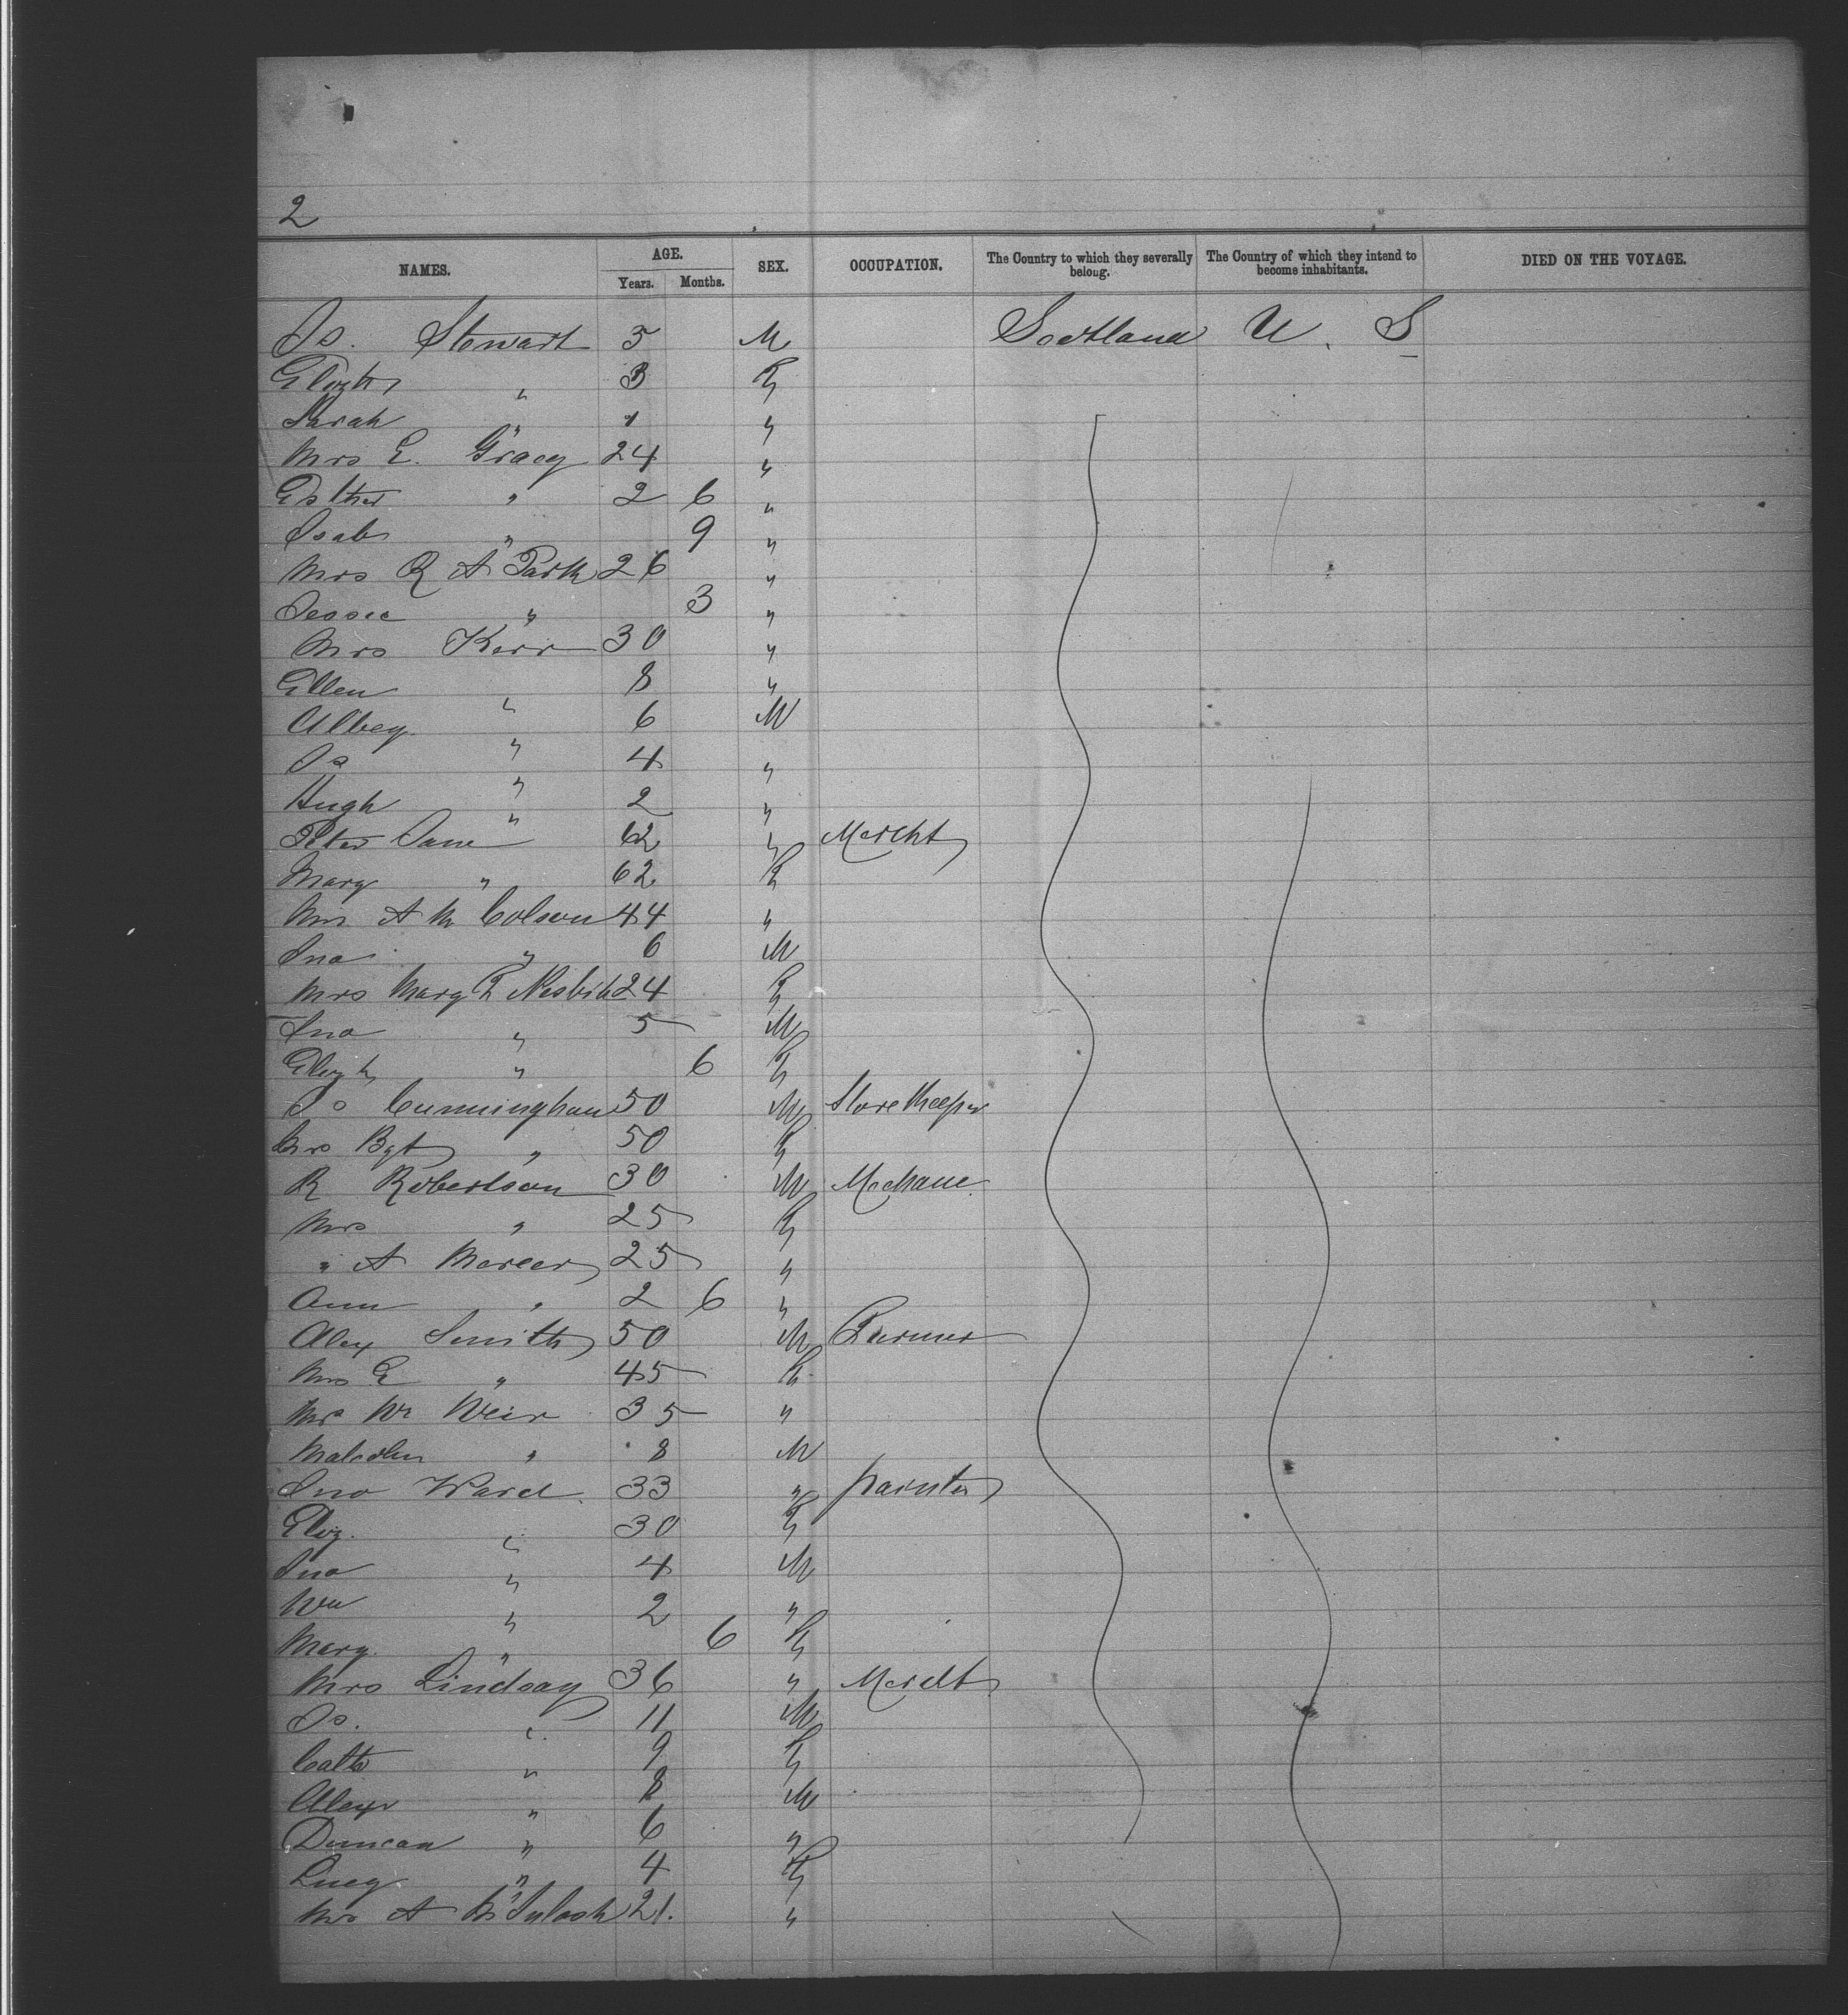 2
NAMES. AGE. Years. Months. SEX. OCCUPATION. The Country to which they severally belong. The Country of which they intend to become inhabitants. DIED ON THE VOYAGE.
Js. Stewart 5 M Scotland U. S
Elizth " 3 F
Sarah " 1 "
Mrs E. Gracy 24 "
Esther " 2 6 "
Isab " 9 "
Mrs R A Park 26 "
Jessie " 3 "
Mrs Kerr 30 "
Ellen " 8 "
Albey " 6 M
Js " 4 "
Hugh " 2 "
Peter 62 " Mercht
Mary " 62 F
Mrs A M Colson 44 "
Jno " 6 M
Mrs Mary F Nesbit 24 F
Jno " 5 M
Elizth " 6 F
Js Cunningham 50 M Store Keeper
Mrs Bgt " 50 F
R Robertson 30 M Mechanc
Mrs " 25 F
" A Mercer 25 "
Ann " 2 6 "
Alex Smith 50 M Farmer
Mrs E " 45 F
Mrs W Weir 35 "
Malcolm " 8 M
Jno Ward 33 " painter
Eliz. " 30 F
Jno " 4 M
Wm " 2 "
Mary " 6 F
Mrs Lindsay 36 " Mercht
Js. " 11 M
Cath " 9 F
Alexr " 8 M
Duncan " 6 "
Lucy " 4 F
Mrs A McIntosh 21. "